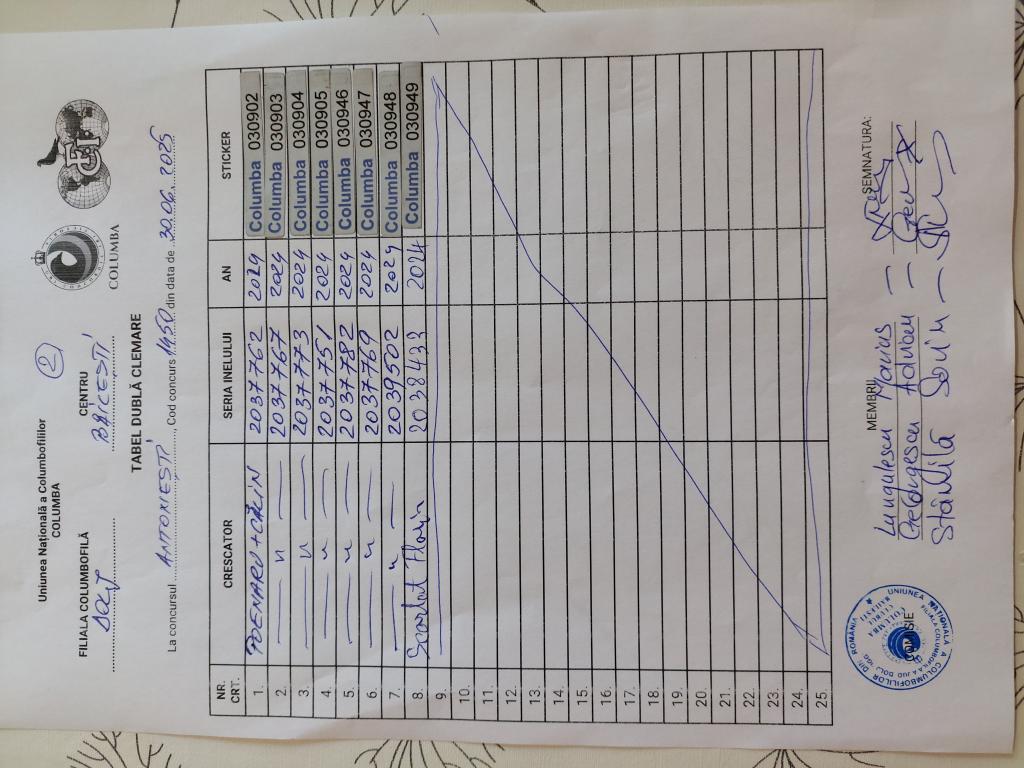 Uniunea Națională a Columbofililor
COLUMBA
2
FILIALA COLUMBOFILĂ CENTRU
DOLJ BĂILEȘTI
COLUMBA
TABEL DUBLĂ CLEMARE
La concursul ANTONIEȘTI, Cod concurs 1450 din data de 30.06.2025
NR. CRT. CRESCATOR SERIA INELULUI AN STICKER
1. POENARU + CĂLIN 2037762 2024 Columba 030902
2. — u — 2037767 2024 Columba 030903
3. — u — 2037773 2024 Columba 030904
4. — u — 2037751 2024 Columba 030905
5. — u — 2037782 2024 Columba 030946
6. — u — 2037769 2024 Columba 030947
7. — u — 2039502 2024 Columba 030948
8. Florin 2038433 2024 Columba 030949
9.
10.
11.
12.
13.
14.
15.
16.
17.
18.
19.
20.
21.
22.
23.
24.
25.
MEMBRII SEMNATURA:
Lungulescu Marius
Georgescu Adrian
Stănilă Sorin
UNIUNEA NAȚIONALĂ A COLUMBOFILILOR DIN ROMÂNIA
FILIALA COLUMBOFILĂ JUD DOLJ